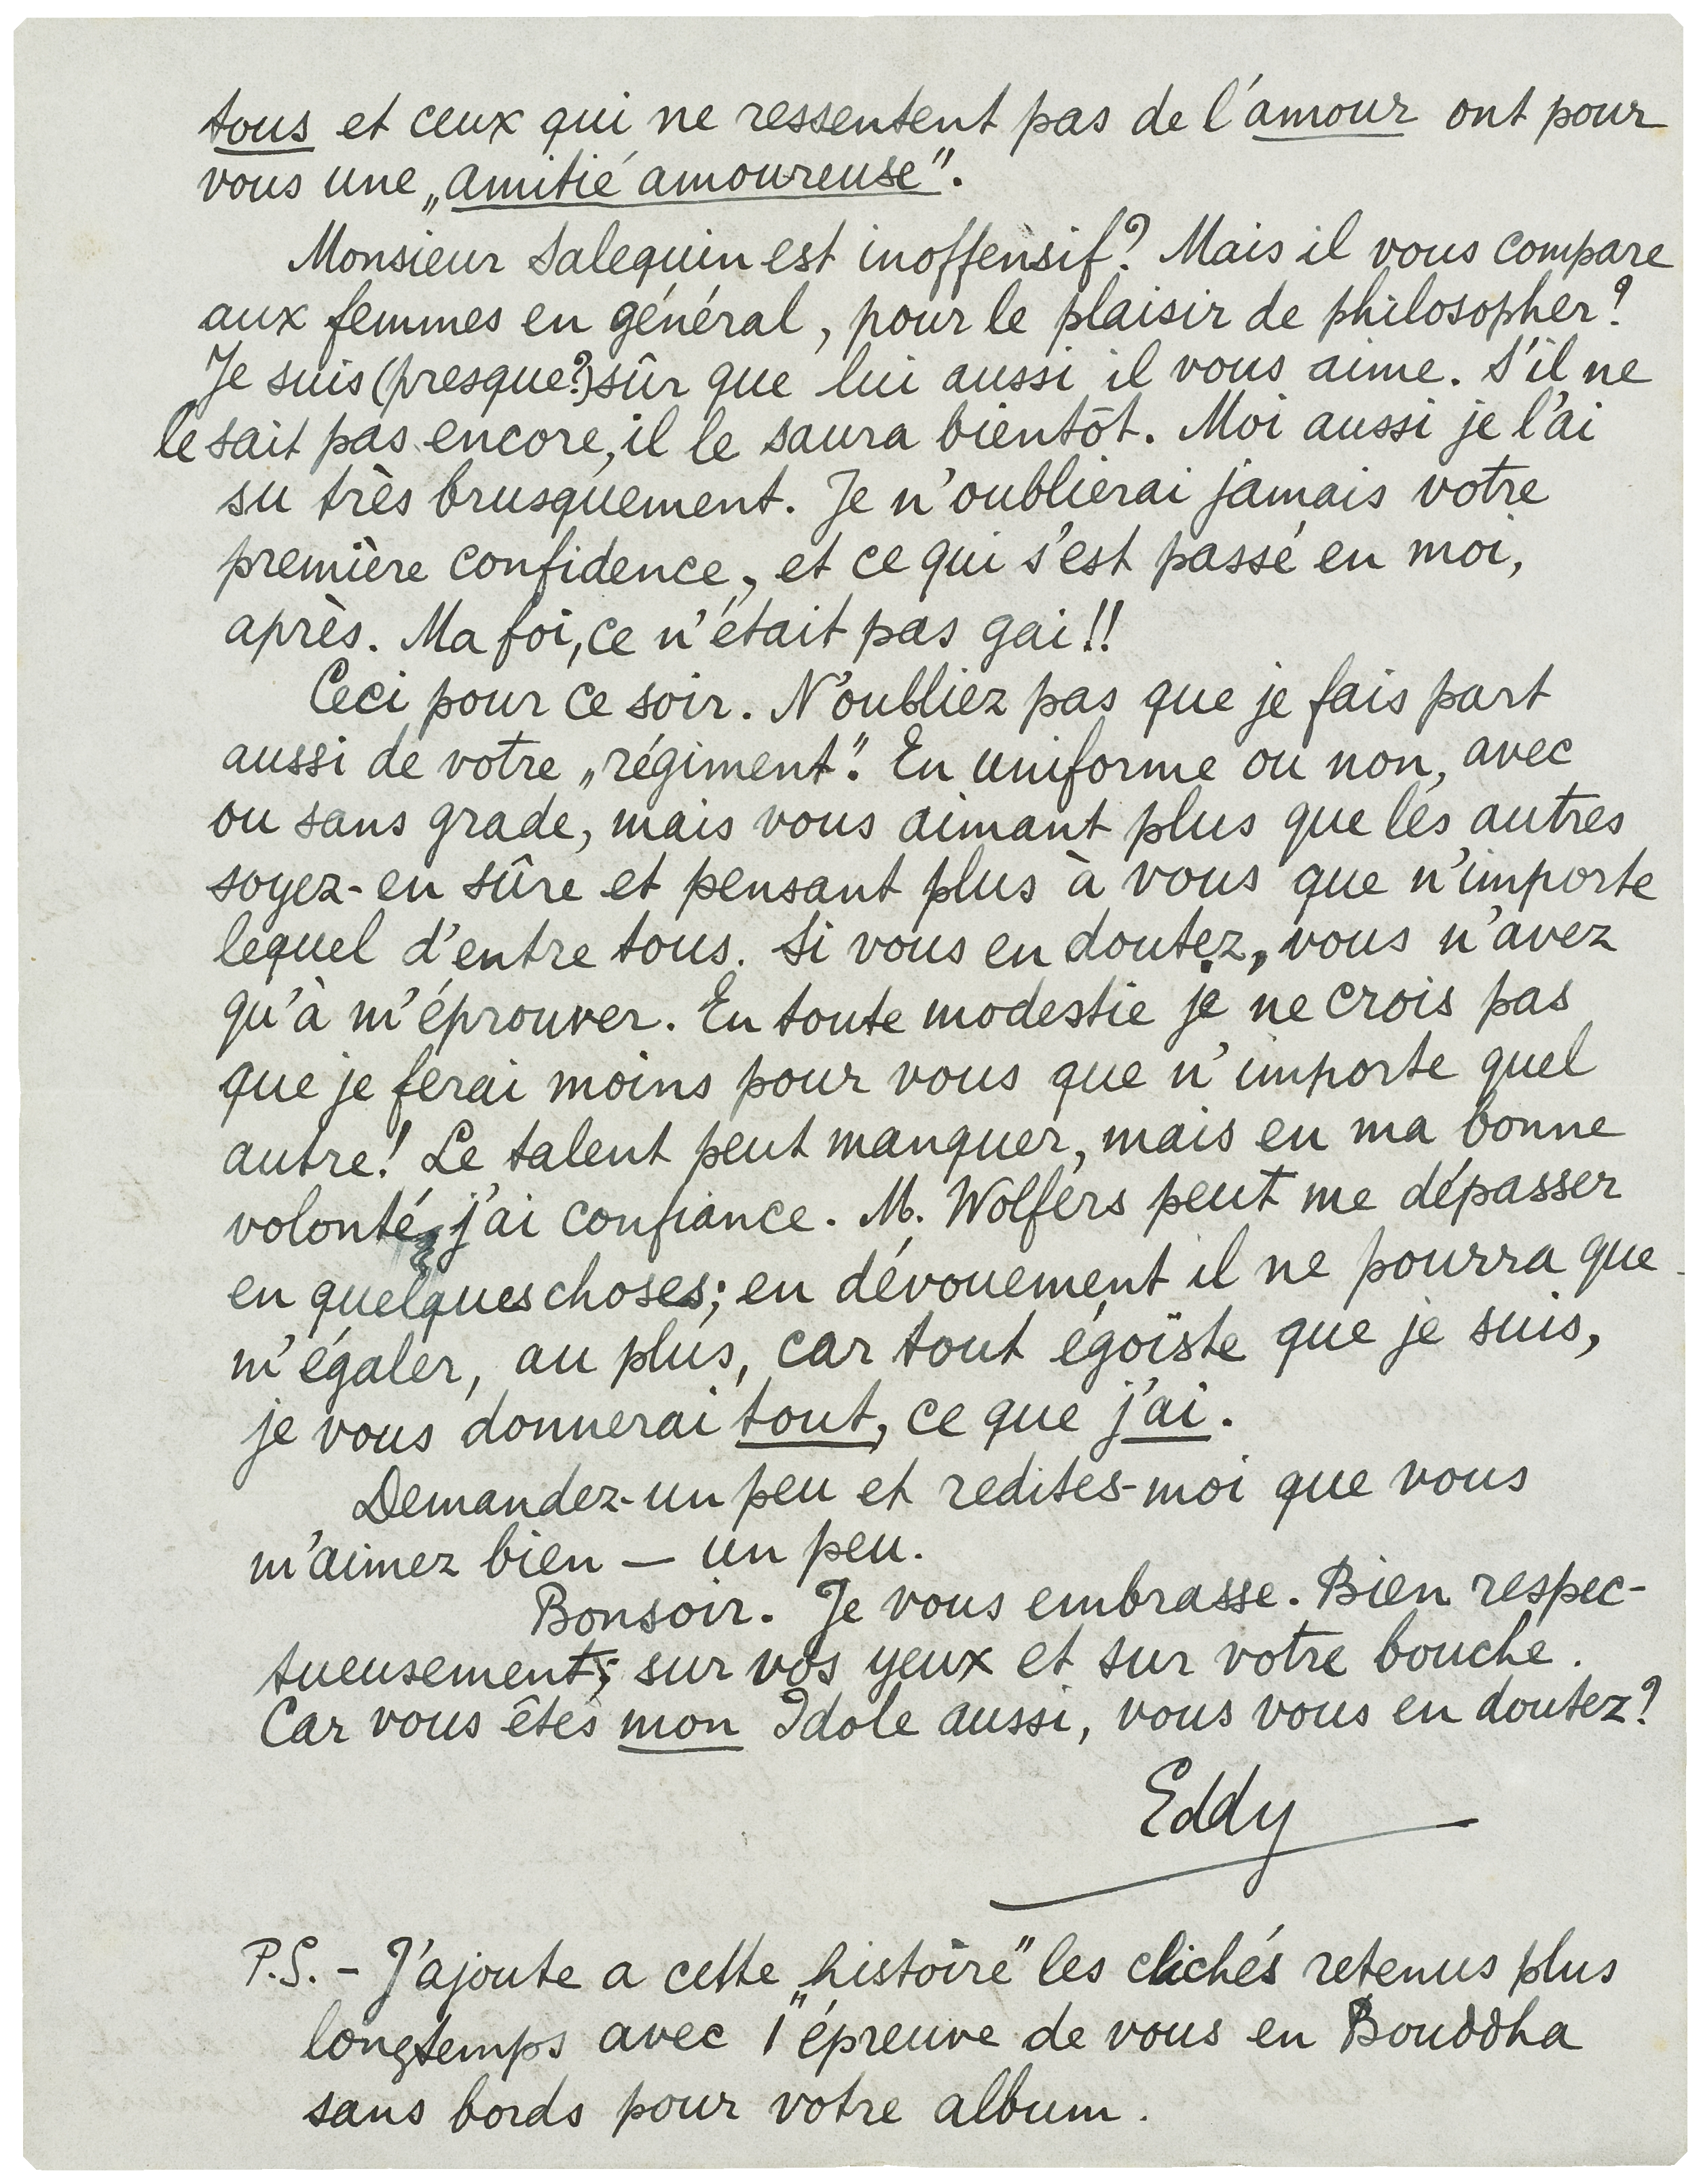 tous et ceux qui ne ressentent pas de l'amour ont pour
vous une „amitié amoureuse".
Monsieur Salequin est inoffensif? Mais il vous compare
aux femmes en général, pour le plaisir de philosopher?
Je suis (presque?) sûr que lui aussi il vous aime. S'il ne
le sait pas encore, il le saura bientôt. Moi aussi je l'ai
su très brusquement. Je n'oublierai jamais votre
première confidence, et ce qui s'est passé en moi,
après. Ma foi, ce n'était pas gai!!
Ceci pour ce soir. N'oubliez pas que je fais part
aussi de votre „régiment". En uniforme ou non, avec
ou sans grade, mais vous aimant plus que les autres
soyez-en sûre et pensant plus à vous que n'importe
lequel d'entre tous. Si vous en doutez, vous n'avez
qu'à m'éprouver. En toute modestie je ne crois pas
que je ferai moins pour vous que n'importe quel
autre! Le talent peut manquer, mais en ma bonne
volonté, j'ai confiance. M. Wolfers peut me dépasser
en quelques choses; en dévouement il ne pourra que
m'égaler, au plus, car tout égoïste que je suis,
je vous donnerai tout, ce que j'ai.
Demandez-un peu et redites-moi que vous
m'aimez bien — un peu.
Bonsoir. Je vous embrasse. Bien respec-
tueusement; sur vos yeux et sur votre bouche.
Car vous êtes mon Idole aussi, vous vous en doutez?
Eddy
P.S. - J'ajoute a cette „histoire" les clichés retenus plus
longtemps avec l'épreuve de vous en Bouddha
sans bords pour votre album.